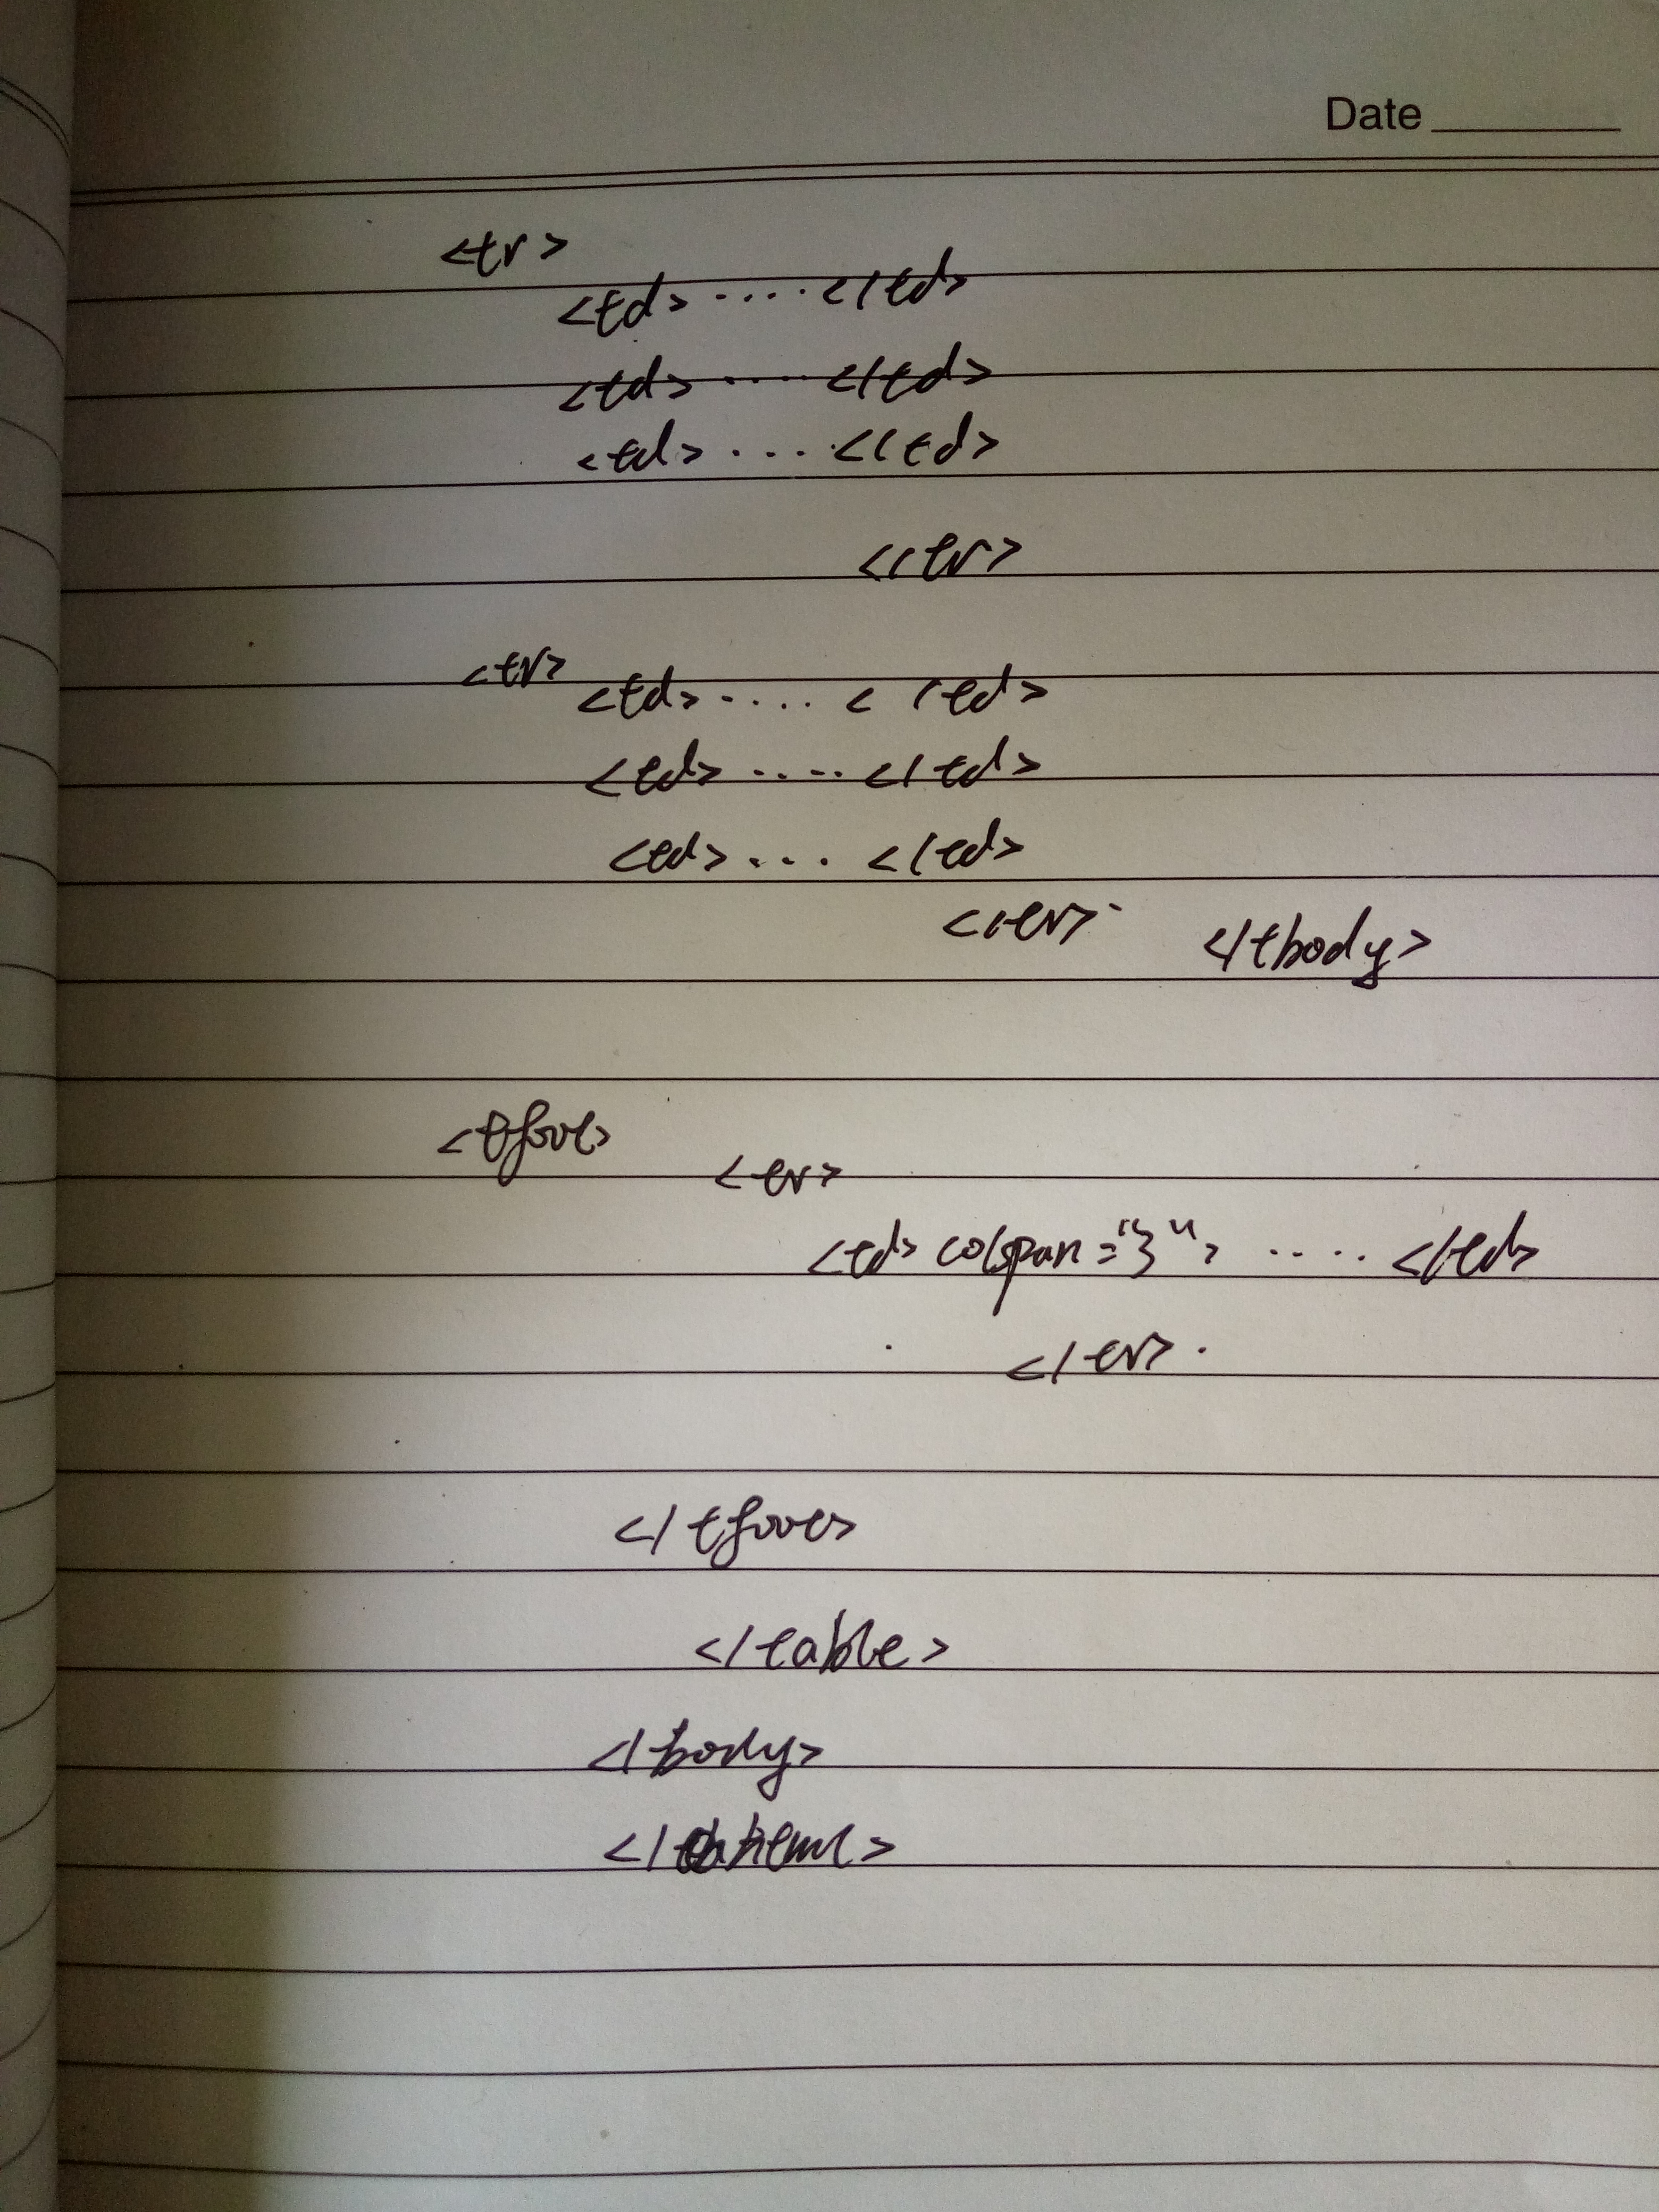 Date
<tr>
<td> .... </td>
<td> .... </td>
<td> .... </td>
</tr>
<tr> <td> .... </td>
<td> .... </td>
<td> ... </td>
</tr>
</tbody>
<tfoot>
<tr>
<td> colspan="3"> .... </td>
</tr>
</tfoot>
</table>
</body>
</html>